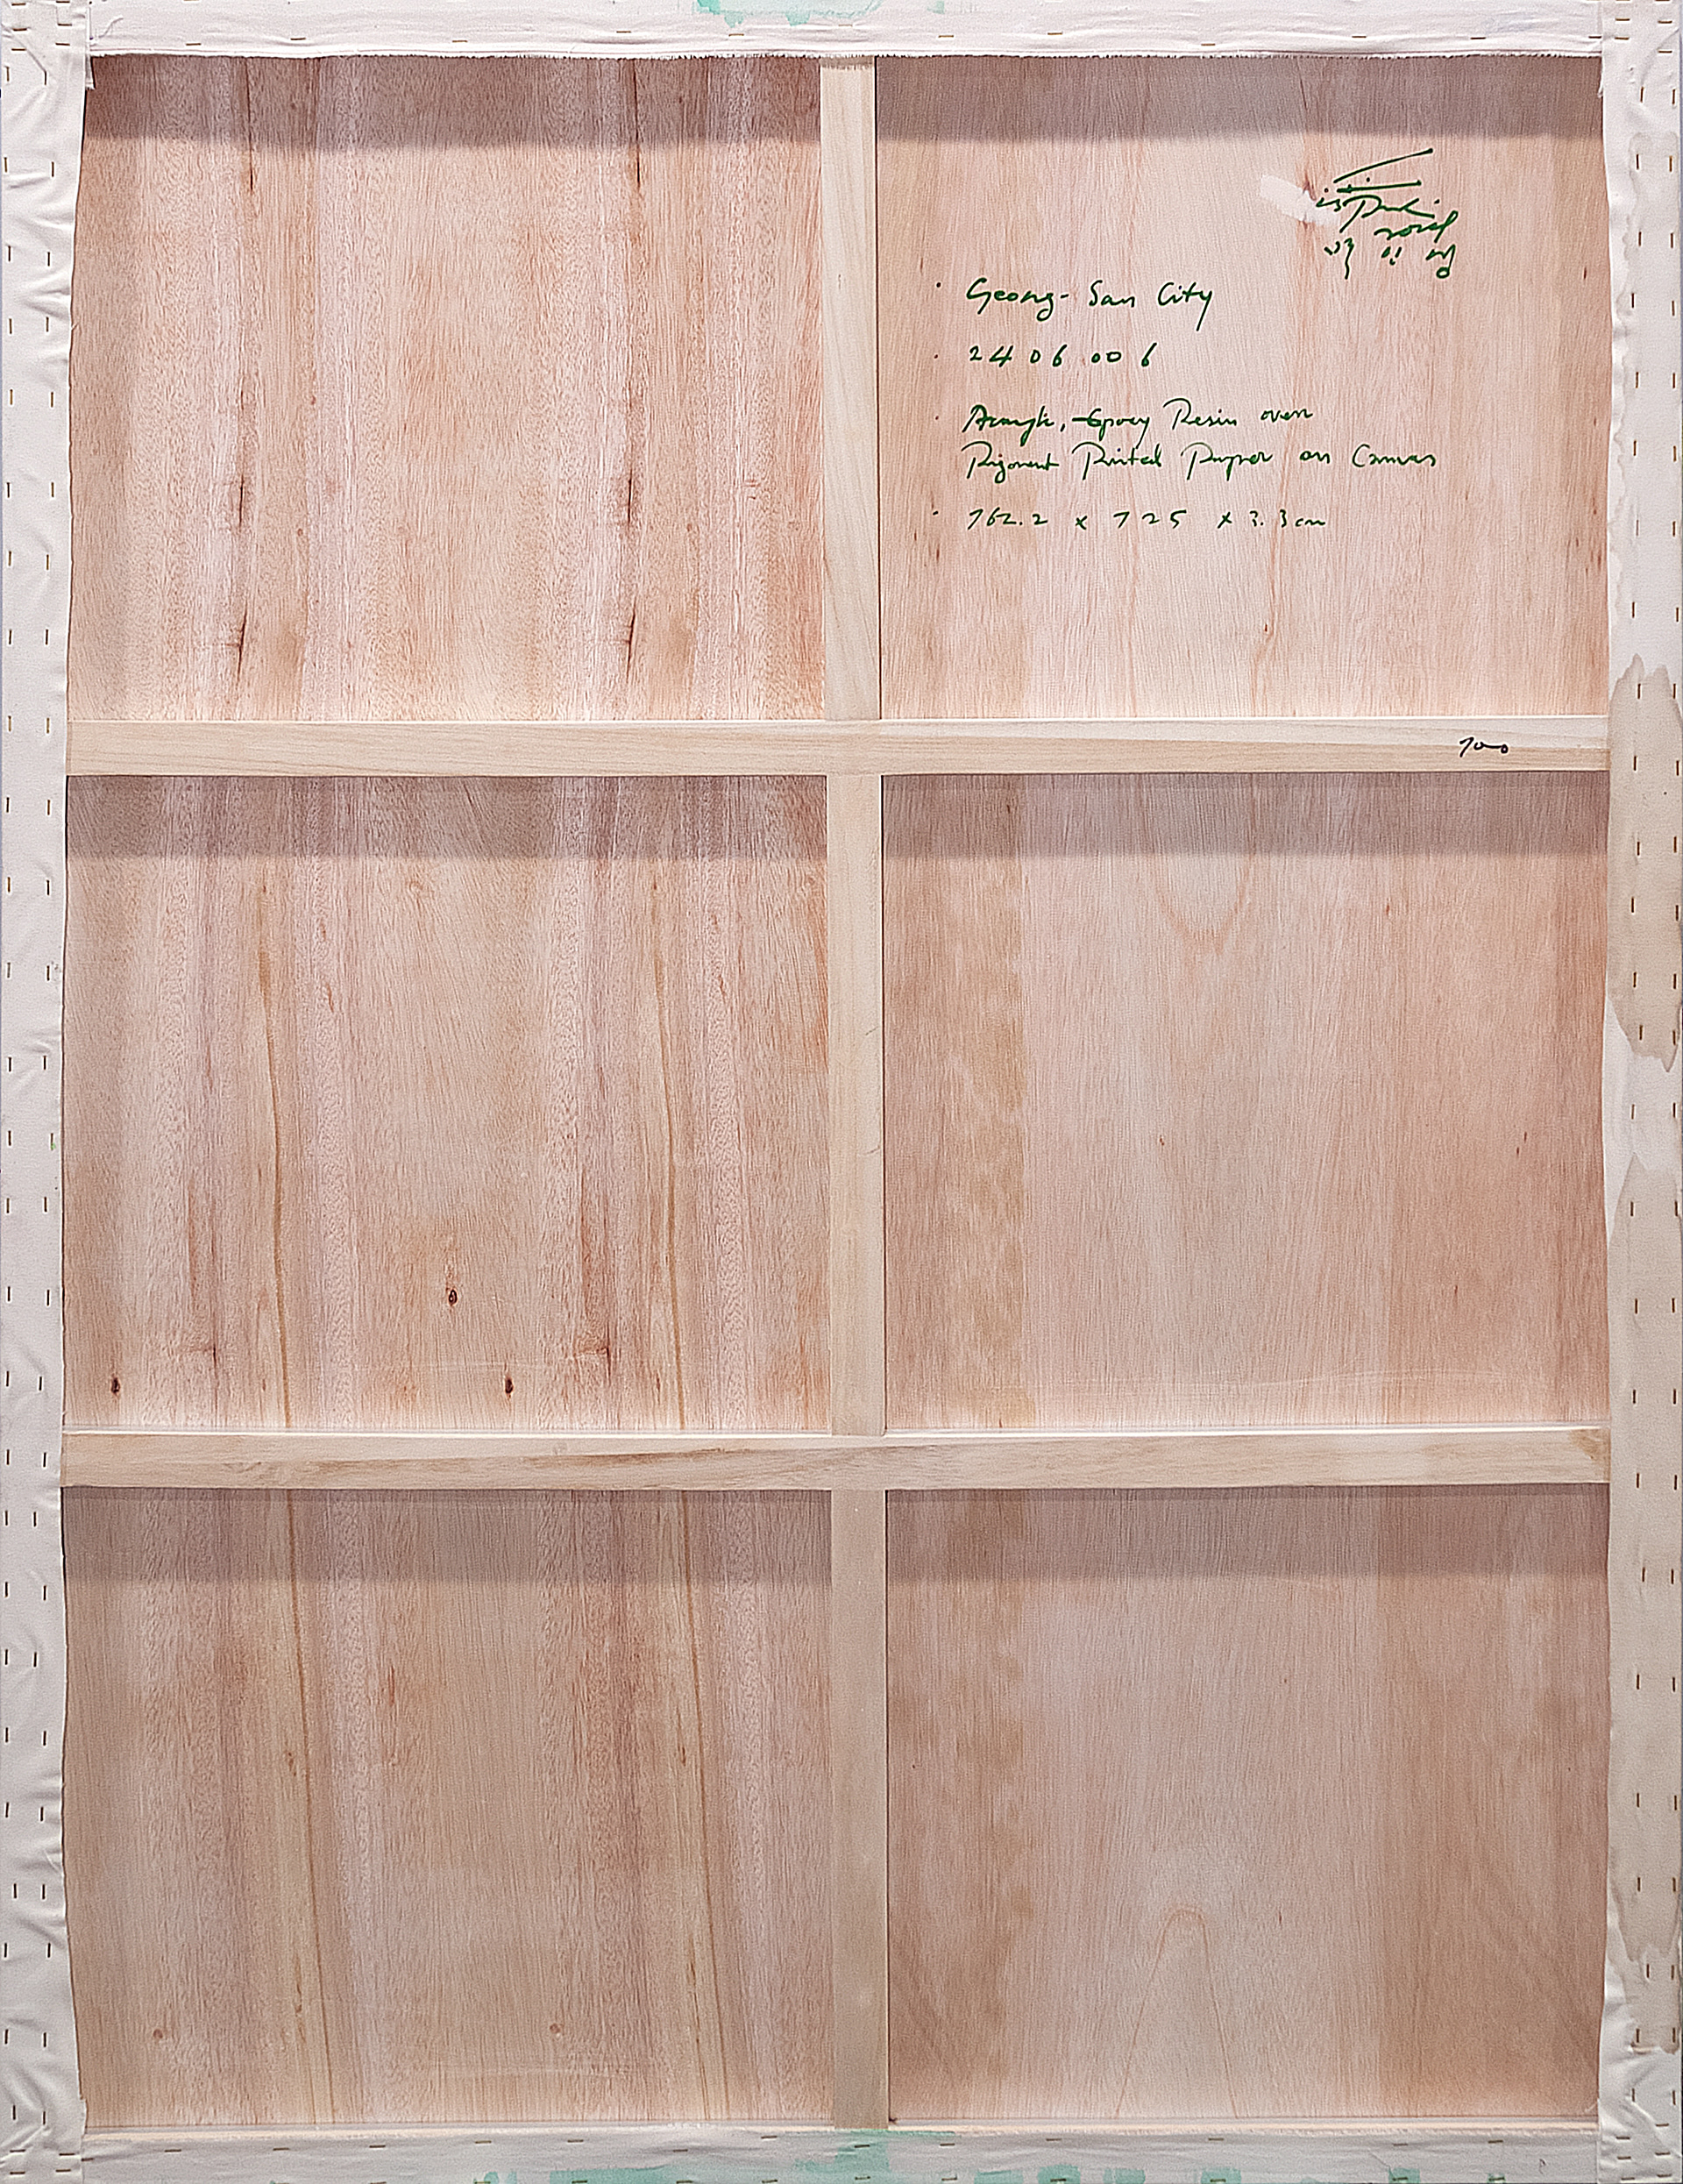 · Geong-San City
· 2406.006
· Acrylic, Epoxy Resin over
Pigment Printed Paper on Canvas
· 162.2 x 125 x 3.3cm
100